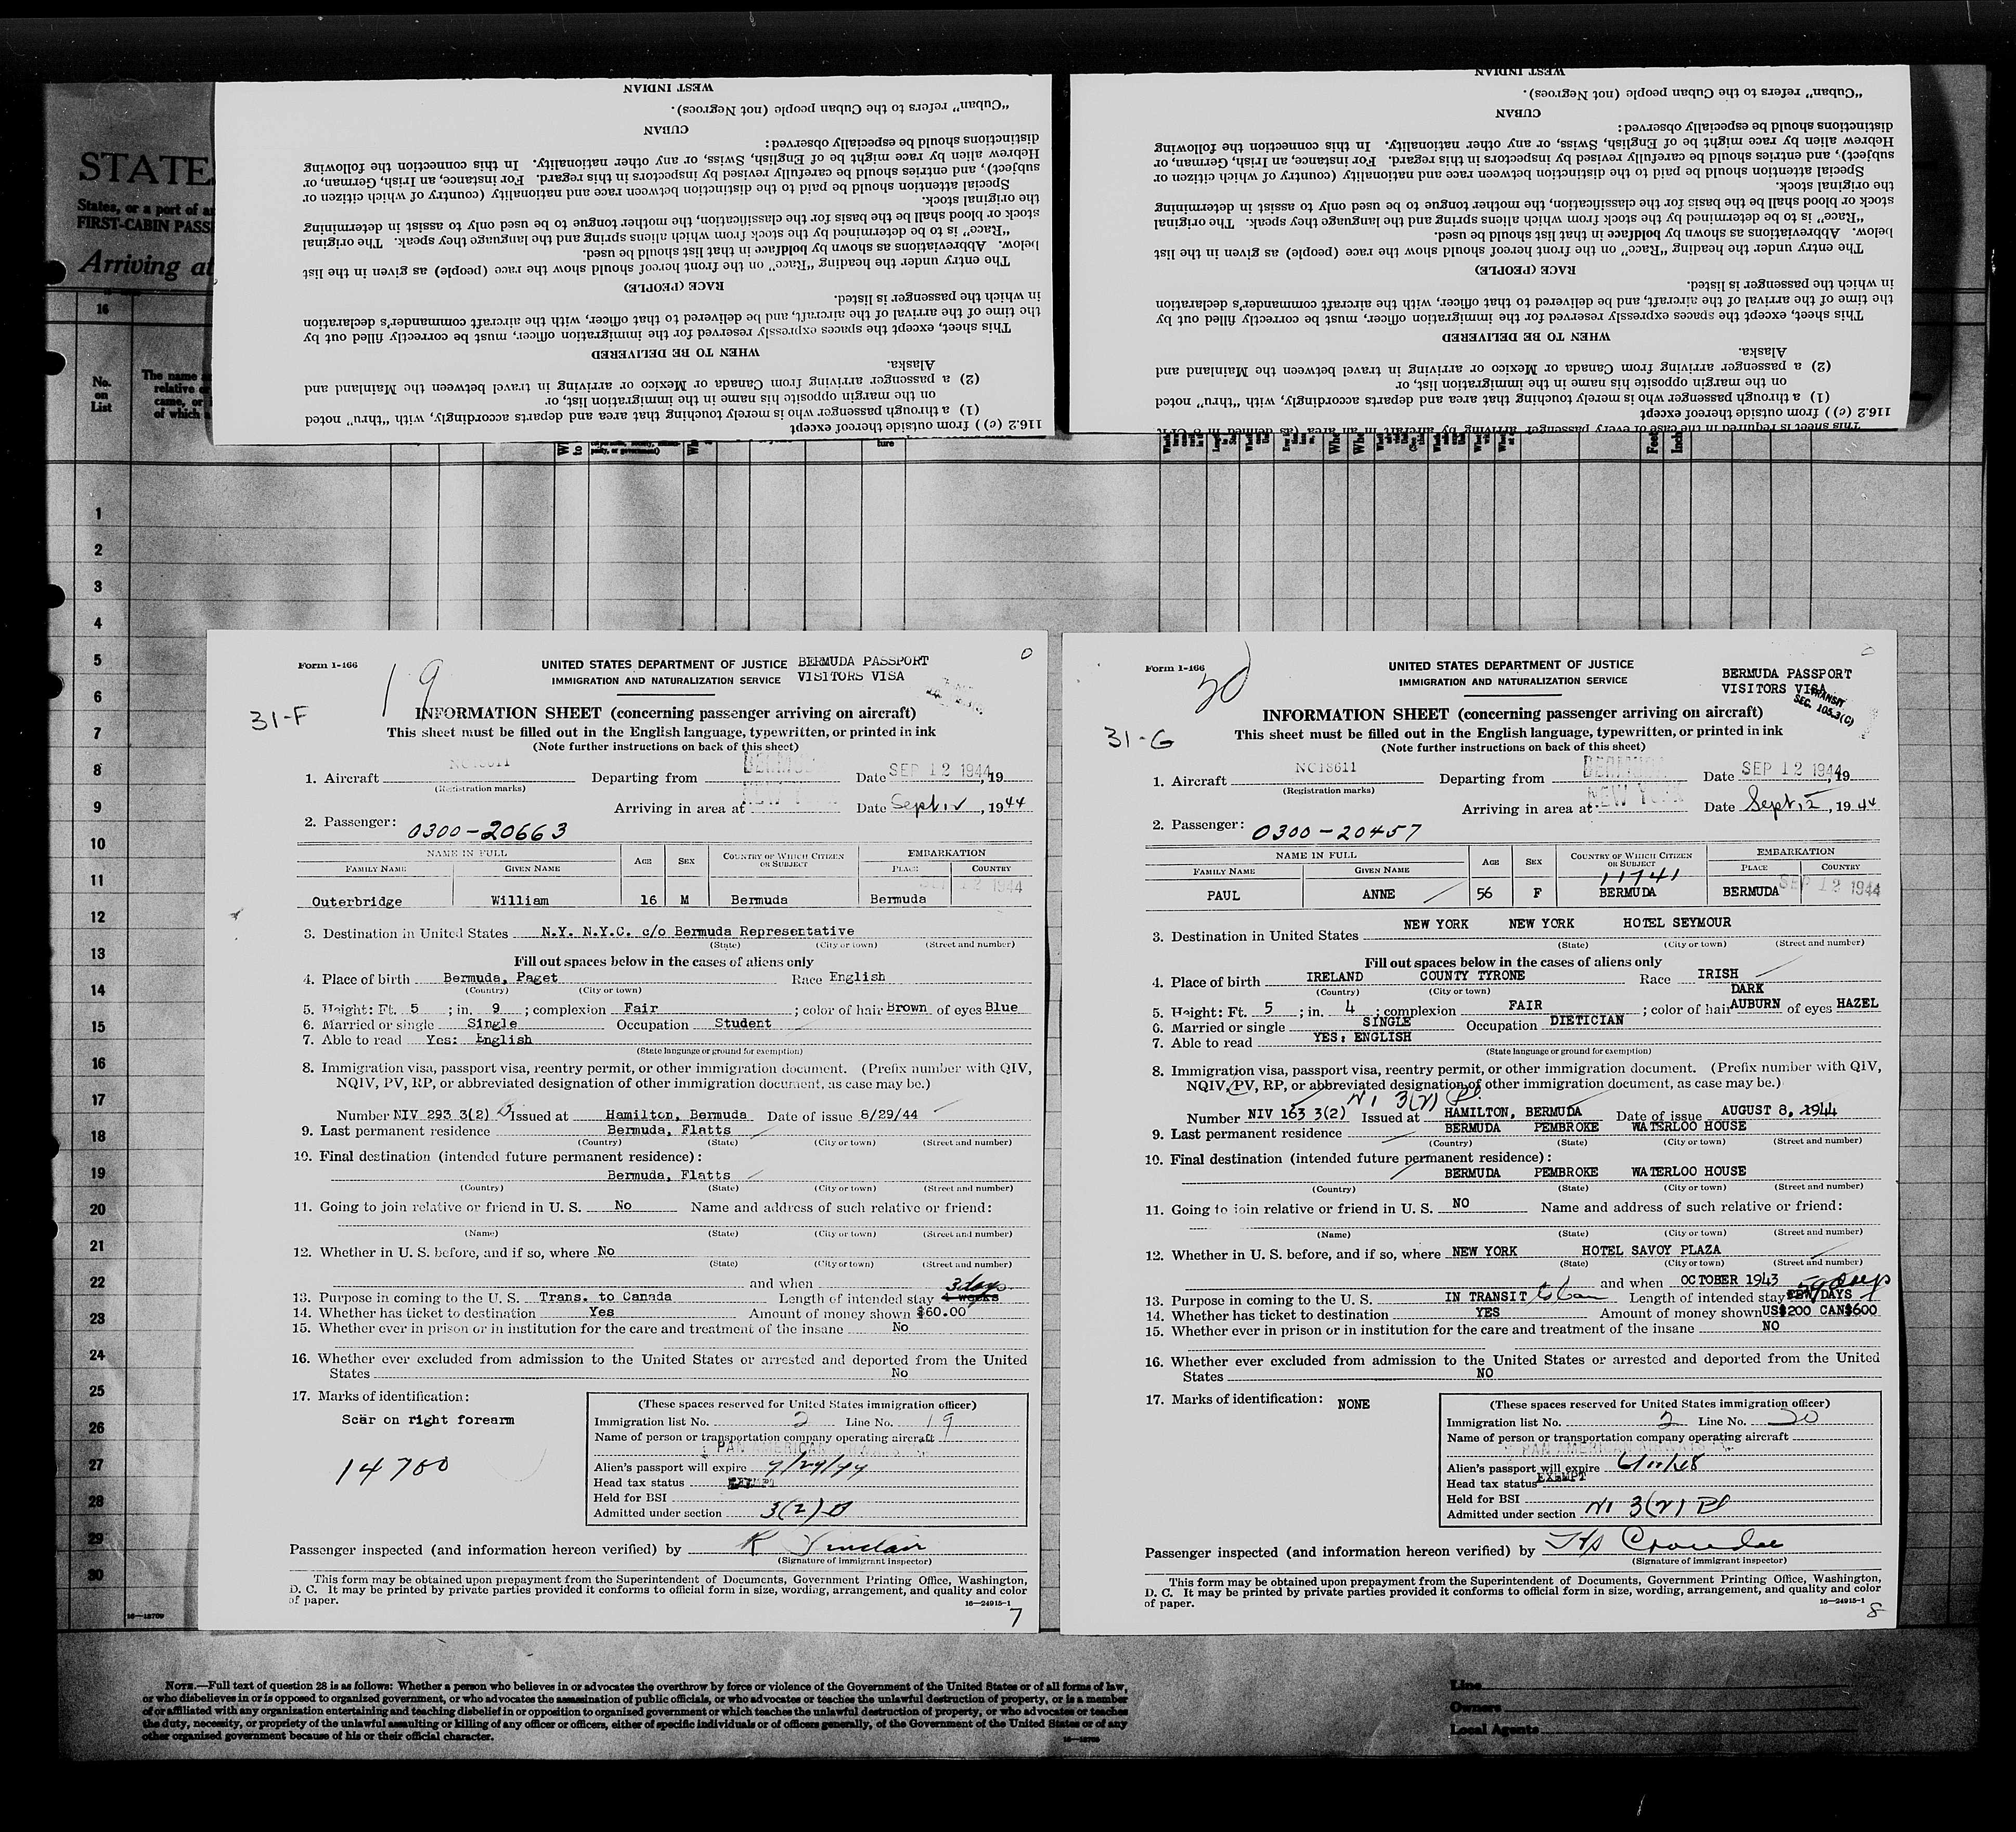 WEST INDIAN
"Cuban" refers to the Cuban people (not Negroes).
CUBAN
distinctions should be especially observed:
Hebrew alien by race might be of English, Swiss, or any other nationality. In this connection the following
subject), and entries should be carefully revised by inspectors in this regard. For instance, an Irish, German, or
Special attention should be paid to the distinction between race and nationality (country of which citizen or
the original stock.
stock or blood shall be the basis for the classification, the mother tongue to be used only to assist in determining
"Race" is to be determined by the stock from which aliens spring and the language they speak. The original
below. Abbreviations as shown by boldface in that list should be used.
The entry under the heading "Race" on the front hereof should show the race (people) as given in the list
RACE (PEOPLE)
in which the passenger is listed.
the time of the arrival of the aircraft, and be delivered to that officer, with the aircraft commander's declaration
This sheet, except the spaces expressly reserved for the immigration officer, must be correctly filled out by
WHEN TO BE DELIVERED
Alaska.
(2) a passenger arriving from Canada or Mexico or arriving in travel between the Mainland and
on the margin opposite his name in the immigration list, or
(1) a through passenger who is merely touching that area and departs accordingly, with "thru" noted
116.2 (c) ) from outside thereof except
WEST INDIAN
"Cuban" refers to the Cuban people (not Negroes).
CUBAN
distinctions should be especially observed:
Hebrew alien by race might be of English, Swiss, or any other nationality. In this connection the following
subject), and entries should be carefully revised by inspectors in this regard. For instance, an Irish, German, or
Special attention should be paid to the distinction between race and nationality (country of which citizen or
the original stock.
stock or blood shall be the basis for the classification, the mother tongue to be used only to assist in determining
"Race" is to be determined by the stock from which aliens spring and the language they speak. The original
below. Abbreviations as shown by boldface in that list should be used.
The entry under the heading "Race" on the front hereof should show the race (people) as given in the list
RACE (PEOPLE)
in which the passenger is listed.
the time of the arrival of the aircraft, and be delivered to that officer, with the aircraft commander's declaration
This sheet, except the spaces expressly reserved for the immigration officer, must be correctly filled out by
WHEN TO BE DELIVERED
Alaska.
(2) a passenger arriving from Canada or Mexico or arriving in travel between the Mainland and
on the margin opposite his name in the immigration list, or
(1) a through passenger who is merely touching that area and departs accordingly, with "thru" noted
116.2 (c) ) from outside thereof except
This sheet is required in the case of every passenger arriving by aircraft in an area (as defined in 8 CFR
STATE
States, or a port of
FIRST-CABIN PASS
Arriving at
16
No. on List
The name
relative or
came, or
of which a
1
2
3
4
5
6
7
8
9
10
11
12
13
14
15
16
17
18
19
20
21
22
23
24
25
26
27
28
29
30
16—12709
Form I-466
19
UNITED STATES DEPARTMENT OF JUSTICE BERMUDA PASSPORT
IMMIGRATION AND NATURALIZATION SERVICE VISITORS VISA
31-F
INFORMATION SHEET (concerning passenger arriving on aircraft)
This sheet must be filled out in the English language, typewritten, or printed in ink
(Note further instructions on back of this sheet)
1. Aircraft NC18611 Departing from BERMUDA Date SEP 12 1944, 19
(Registration marks)
Arriving in area at NEW YORK Date Sept 12, 1944
2. Passenger: 0300-20663
NAME IN FULL AGE SEX COUNTRY OF WHICH CITIZEN OR SUBJECT EMBARKATION
FAMILY NAME GIVEN NAME PLACE COUNTRY
SEP 12 1944
Outerbridge William 16 M Bermuda Bermuda
3. Destination in United States N.Y. N.Y.C. c/o Bermuda Representative
(State) (City or town) (Street and number)
Fill out spaces below in the cases of aliens only
4. Place of birth Bermuda, Paget Race English
(Country) (City or town)
5. Height: Ft. 5 ; in. 9 ; complexion Fair ; color of hair Brown of eyes Blue
6. Married or single Single Occupation Student
7. Able to read Yes: English
(State language or ground for exemption)
8. Immigration visa, passport visa, reentry permit, or other immigration document. (Prefix number with QIV,
NQIV, PV, RP, or abbreviated designation of other immigration document, as case may be.)
Number NIV 293 3(2) Issued at Hamilton, Bermuda Date of issue 8/29/44
9. Last permanent residence Bermuda, Flatts
(Country) (State) (City or town) (Street and number)
10. Final destination (intended future permanent residence):
Bermuda, Flatts
(Country) (State) (City or town) (Street and number)
11. Going to join relative or friend in U. S. No Name and address of such relative or friend:
(Name) (State) (City or town) (Street and number)
12. Whether in U. S. before, and if so, where No
(State) (City or town) (Street and number)
and when 3 days
13. Purpose in coming to the U. S. Trans. to Canada Length of intended stay 4 weeks
14. Whether has ticket to destination Yes Amount of money shown $60.00
15. Whether ever in prison or in institution for the care and treatment of the insane No
16. Whether ever excluded from admission to the United States or arrested and deported from the United
States No
17. Marks of identification:
Scar on right forearm
14700
(These spaces reserved for United States immigration officer)
Immigration list No. 2 Line No. 19
Name of person or transportation company operating aircraft
PAN AMERICAN
Alien's passport will expire 9/29/44
Head tax status EXEMPT
Held for BSI
Admitted under section 3(2) B
Passenger inspected (and information hereon verified) by R Sinclair
(Signature of immigrant inspector)
This form may be obtained upon prepayment from the Superintendent of Documents, Government Printing Office, Washington,
D. C. It may be printed by private parties provided it conforms to official form in size, wording, arrangement, and quality and color
of paper.
16—24915-1
7
Form I-466
20
UNITED STATES DEPARTMENT OF JUSTICE
IMMIGRATION AND NATURALIZATION SERVICE
BERMUDA PASSPORT
VISITORS VISA
TRANSIT
SEC. 105.3(C)
31-G
INFORMATION SHEET (concerning passenger arriving on aircraft)
This sheet must be filled out in the English language, typewritten, or printed in ink
(Note further instructions on back of this sheet)
1. Aircraft NC18611 Departing from BERMUDA Date SEP 12 1944, 19
(Registration marks)
Arriving in area at NEW YORK Date Sept 12, 1944
2. Passenger: 0300-20457
NAME IN FULL AGE SEX COUNTRY OF WHICH CITIZEN OR SUBJECT EMBARKATION
FAMILY NAME GIVEN NAME PLACE COUNTRY
11741 SEP 12 1944
PAUL ANNE 56 F BERMUDA BERMUDA
3. Destination in United States NEW YORK NEW YORK HOTEL SEYMOUR
(State) (City or town) (Street and number)
Fill out spaces below in the cases of aliens only
4. Place of birth IRELAND COUNTY TYRONE Race IRISH
(Country) (City or town)
DARK
5. Height: Ft. 5 ; in. 4 ; complexion FAIR ; color of hair AUBURN of eyes HAZEL
6. Married or single SINGLE Occupation DIETICIAN
7. Able to read YES: ENGLISH
(State language or ground for exemption)
8. Immigration visa, passport visa, reentry permit, or other immigration document. (Prefix number with QIV,
NQIV, PV, RP, or abbreviated designation of other immigration document, as case may be.)
NI 3(2)
Number NIV 163 3(2) Issued at HAMILTON, BERMUDA Date of issue AUGUST 8, 1944
9. Last permanent residence BERMUDA PEMBROKE WATERLOO HOUSE
(Country) (State) (City or town) (Street and number)
10. Final destination (intended future permanent residence):
BERMUDA PEMBROKE WATERLOO HOUSE
(Country) (State) (City or town) (Street and number)
11. Going to join relative or friend in U. S. NO Name and address of such relative or friend:
(Name) (State) (City or town) (Street and number)
12. Whether in U. S. before, and if so, where NEW YORK HOTEL SAVOY PLAZA
(State) (City or town) (Street and number)
and when OCTOBER 1943
13. Purpose in coming to the U. S. IN TRANSIT to Can Length of intended stay FEW DAYS
14. Whether has ticket to destination YES Amount of money shown US$200 CAN$600
15. Whether ever in prison or in institution for the care and treatment of the insane NO
16. Whether ever excluded from admission to the United States or arrested and deported from the United
States NO
17. Marks of identification: NONE
(These spaces reserved for United States immigration officer)
Immigration list No. 2 Line No. 20
Name of person or transportation company operating aircraft
PAN AMERICAN AIRWAYS
Alien's passport will expire
Head tax status EXEMPT
Held for BSI
Admitted under section NI 3(2)
Passenger inspected (and information hereon verified) by
(Signature of immigrant inspector)
This form may be obtained upon prepayment from the Superintendent of Documents, Government Printing Office, Washington,
D. C. It may be printed by private parties provided it conforms to official form in size, wording, arrangement, and quality and color
of paper.
16—24915-1
8
NOTE.—Full text of question 28 is as follows: Whether a person who believes in or advocates the overthrow by force or violence of the Government of the United States or of all forms of law,
or who disbelieves in or is opposed to organized government, or who advocates the assassination of public officials, or who advocates or teaches the unlawful destruction of property, or is a member
of or affiliated with any organization entertaining and teaching disbelief in or opposition to organized government or which teaches the unlawful destruction of property, or who advocates or teaches
the duty, necessity, or propriety of the unlawful assaulting or killing of any officer or officers, either of specific individuals or of officers generally, of the Government of the United States or of any
other organized government because of his or their official character.
Line
Owners
Local Agents